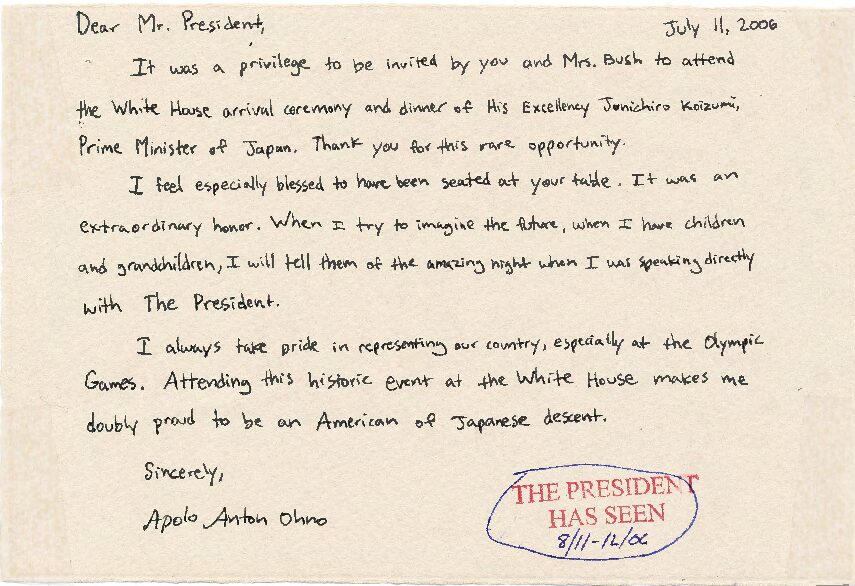 Dear Mr. President,
July 11, 2006
It was a privilege to be invited by you and Mrs. Bush to attend
the White House arrival ceremony and dinner of His Excellency Junichiro Koizumi,
Prime Minister of Japan. Thank you for this rare opportunity.
I feel especially blessed to have been seated at your table. It was an
extraordinary honor. When I try to imagine the future, when I have children
and grandchildren, I will tell them of the amazing night when I was speaking directly
with The President.
I always take pride in representing our country, especially at the Olympic
Games. Attending this historic event at the White House makes me
doubly proud to be an American of Japanese descent.
Sincerely,
Apolo Anton Ohno
THE PRESIDENT
HAS SEEN
8/11-12/06